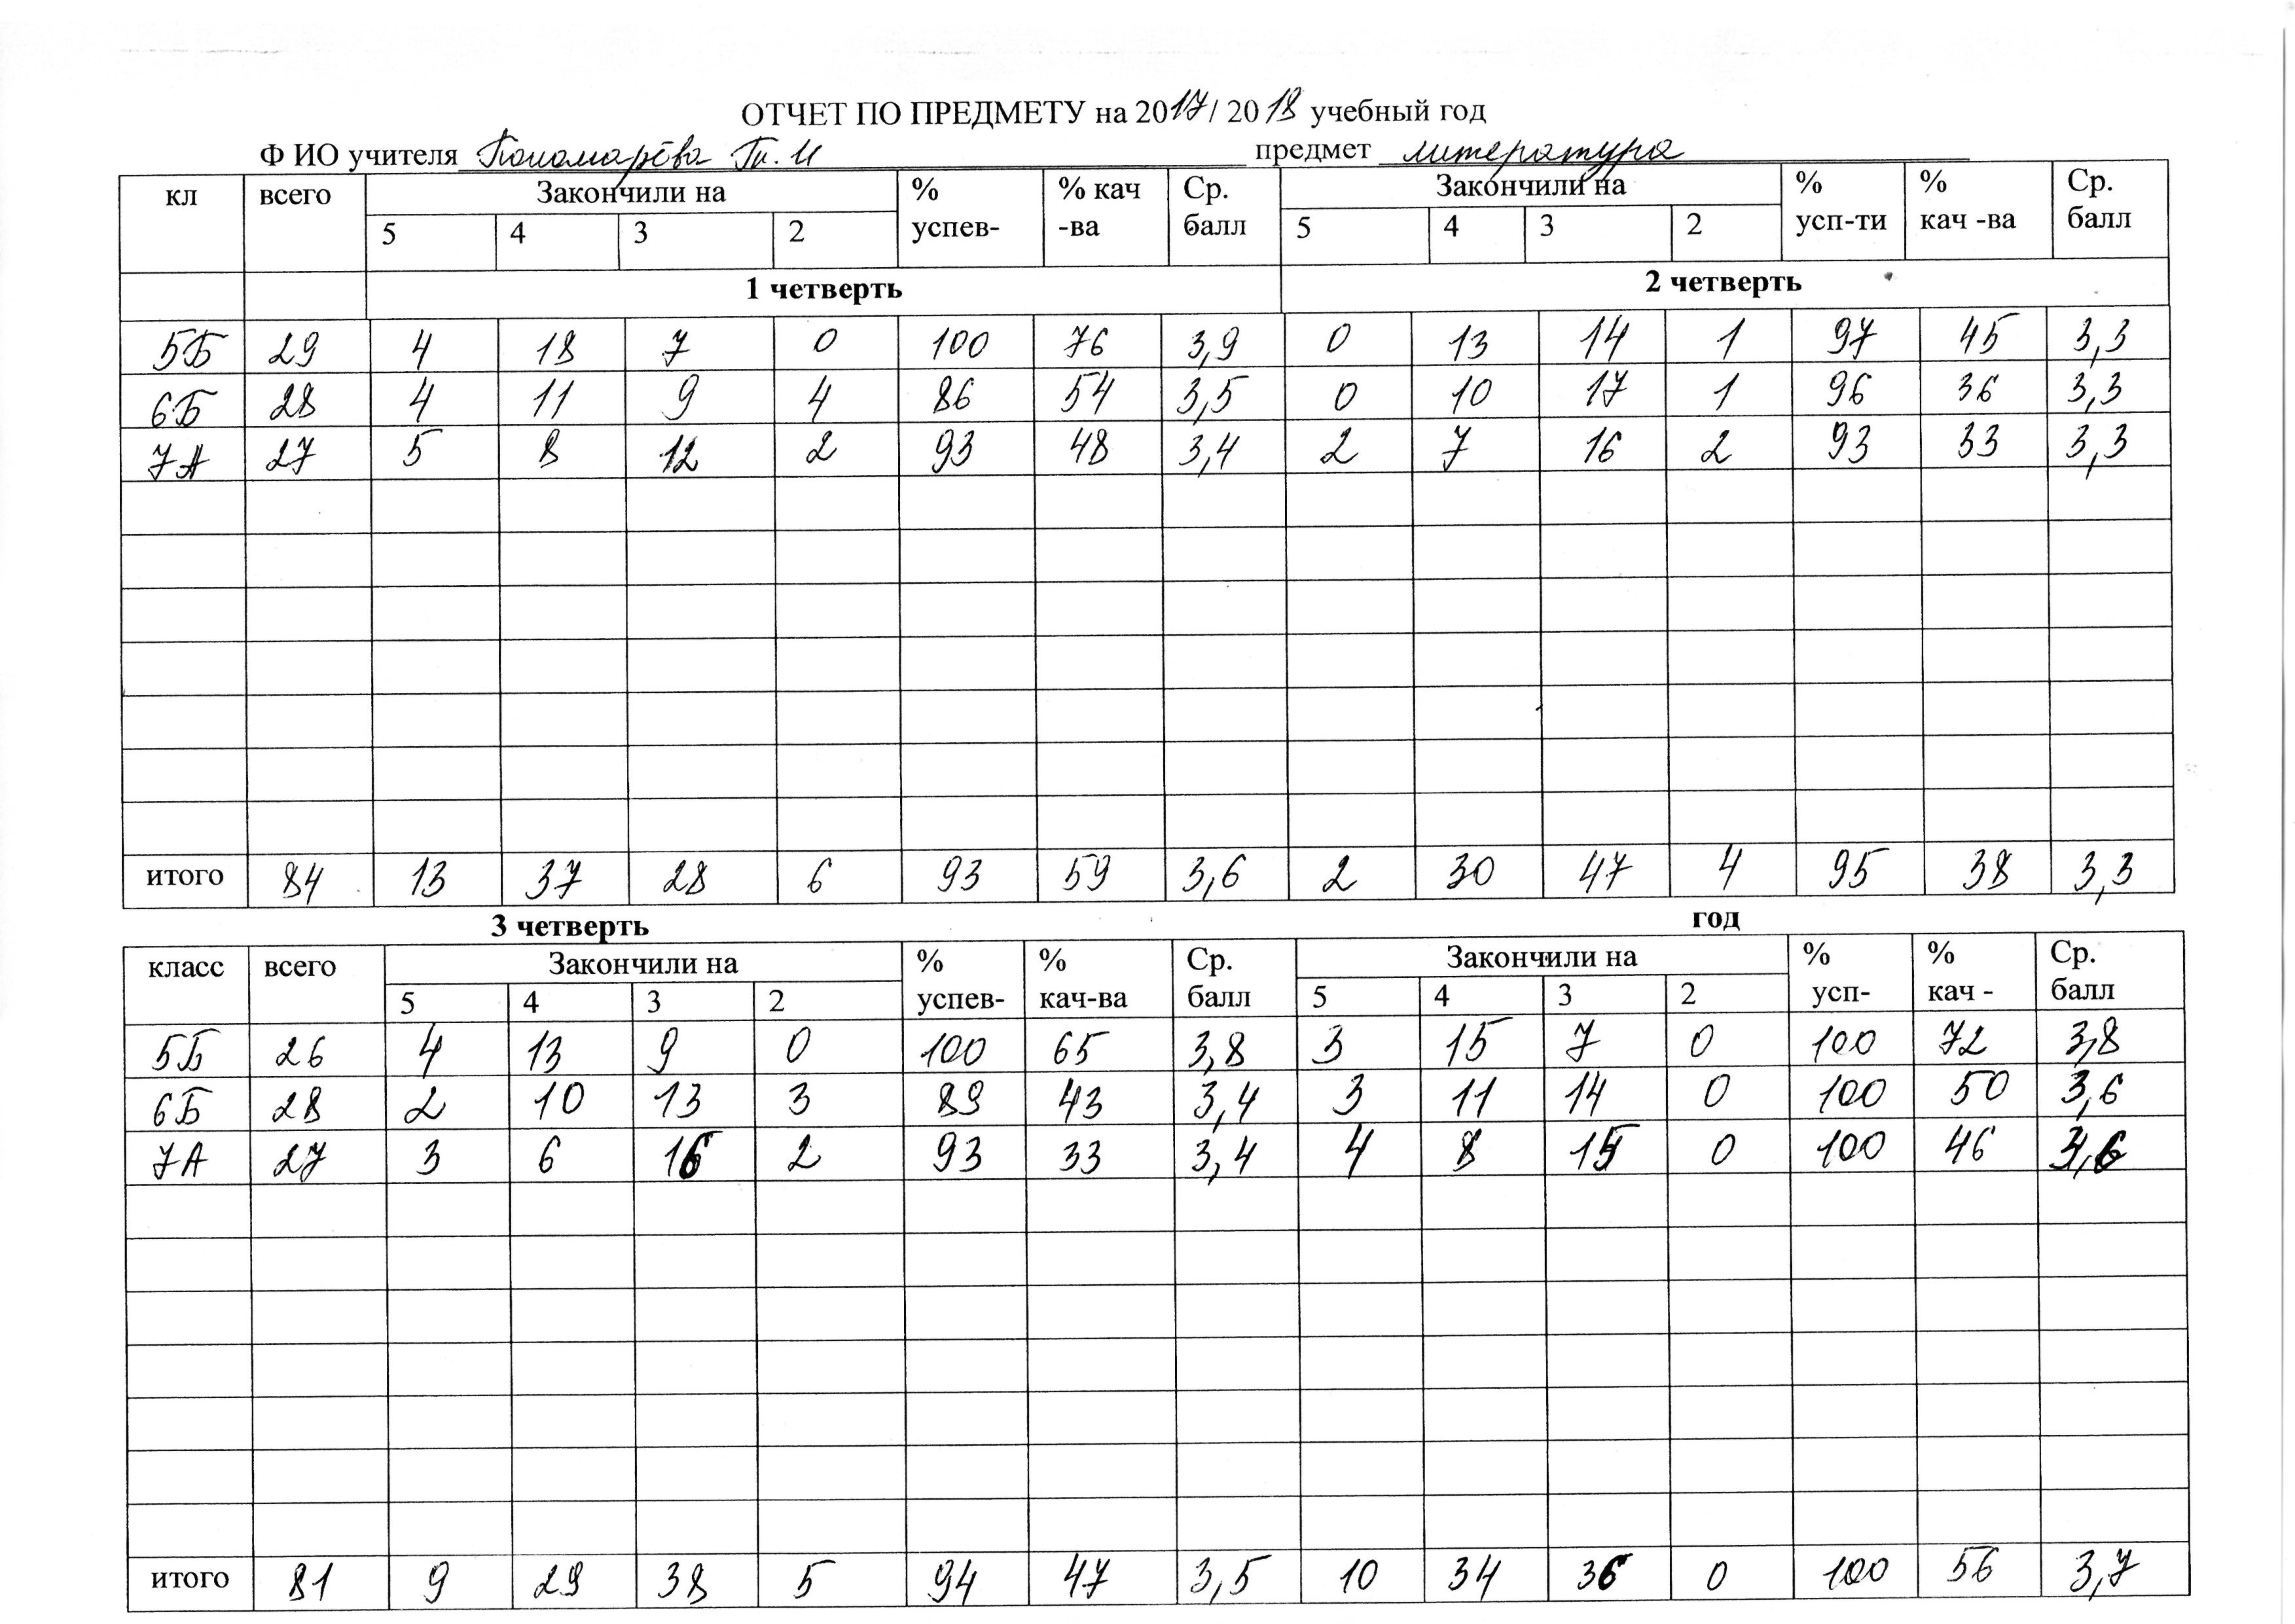 ОТЧЕТ ПО ПРЕДМЕТУ на 2017/ 2018 учебный год
Ф ИО учителя Пономарёва Тт. И предмет литература
кл всего Закончили на % % кач Ср. Закончили на % % Ср.
5 4 3 2 успев- -ва балл 5 4 3 2 усп-ти кач -ва балл
1 четверть 2 четверть
5Б 29 4 18 7 0 100 76 3,9 0 13 14 1 97 45 3,3
6Б 28 4 11 9 4 86 54 3,5 0 10 17 1 96 36 3,3
7А 27 5 8 12 2 93 48 3,4 2 7 16 2 93 33 3,3
итого 84 13 37 28 6 93 59 3,6 2 30 47 4 95 38 3,3
3 четверть год
класс всего Закончили на % % Ср. Закончили на % % Ср.
5 4 3 2 успев- кач-ва балл 5 4 3 2 усп- кач - балл
5Б 26 4 13 9 0 100 65 3,8 3 15 7 0 100 72 3,8
6Б 28 2 10 13 3 89 43 3,4 3 11 14 0 100 50 3,6
7А 27 3 6 16 2 93 33 3,4 4 8 15 0 100 46 3,6
итого 81 9 29 38 5 94 47 3,5 10 34 36 0 100 56 3,7